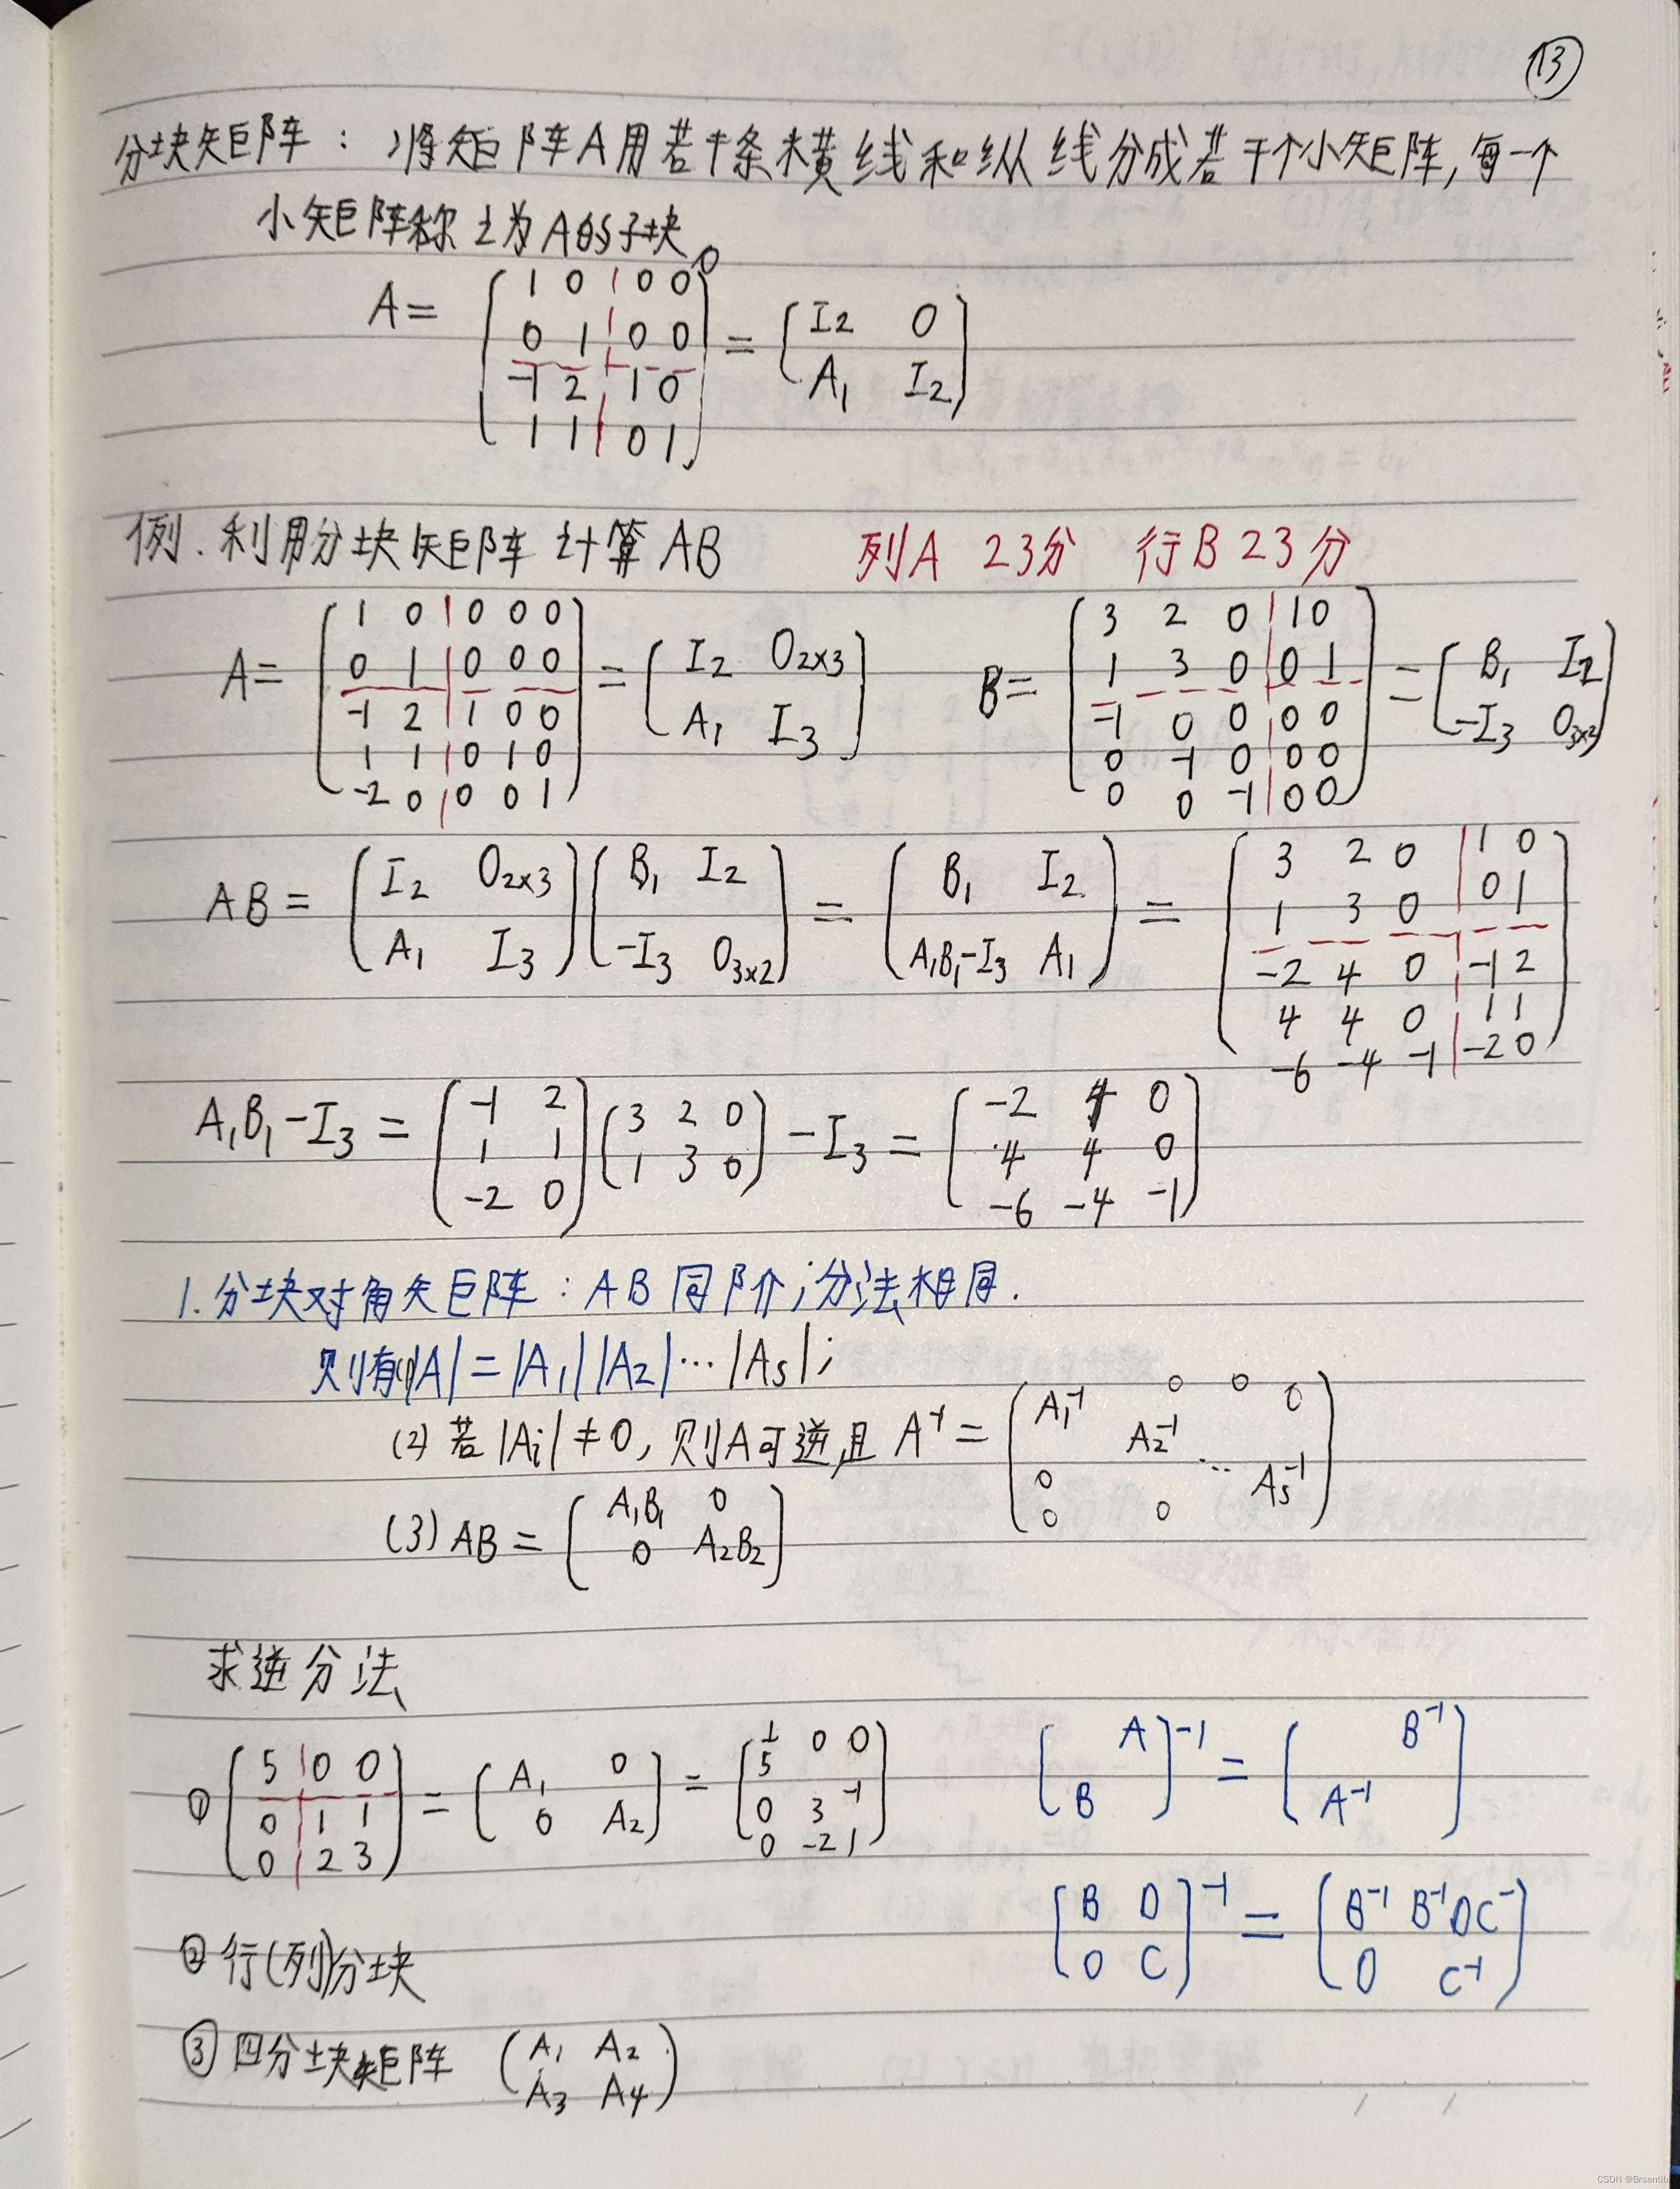 13
分块矩阵：将矩阵A用若干条横线和纵线分成若干个小矩阵,每一个
小矩阵称之为A的子块。
A= (1 0 0 0; 0 1 0 0; -1 2 1 0; 1 1 0 1) = (I2 0; A1 I2)
例.利用分块矩阵计算AB 列A 23分 行B 23分
A= (1 0 0 0 0; 0 1 0 0 0; -1 2 1 0 0; 1 1 0 1 0; -2 0 0 0 1) = (I2 O2×3; A1 I3) B= (3 2 0 1 0; 1 3 0 0 1; -1 0 0 0 0; 0 -1 0 0 0; 0 0 -1 0 0) = (B1 I2; -I3 O3×2)
AB = (I2 O2×3; A1 I3)(B1 I2; -I3 O3×2) = (B1 I2; A1B1-I3 A1) = (3 2 0 1 0; 1 3 0 0 1; -2 4 0 -1 2; 4 4 0 1 1; -6 -4 -1 -2 0)
A1B1-I3 = (-1 2; 1 1; -2 0)(3 2 0; 1 3 0) -I3 = (-2 4 0; 4 4 0; -6 -4 -1)
1.分块对角矩阵：AB同阶;分法相同.
则有(1)|A|=|A1||A2|…|As|;
(2)若|Ai|≠0,则A可逆,且 A⁻¹= (A1⁻¹ 0 0 0; A2⁻¹; 0 … As⁻¹; 0 0)
(3) AB = (A1B1 0; 0 A2B2)
求逆分法
① (5 0 0; 0 1 1; 0 2 3) = (A1 0; 0 A2) = (1/5 0 0; 0 3 -1; 0 -2 1) [A; B]⁻¹ = (B⁻¹; A⁻¹)
[B D; 0 C]⁻¹ = (B⁻¹ B⁻¹DC⁻; 0 C⁻¹)
②行(列)分块
③四分块矩阵 (A1 A2; A3 A4)